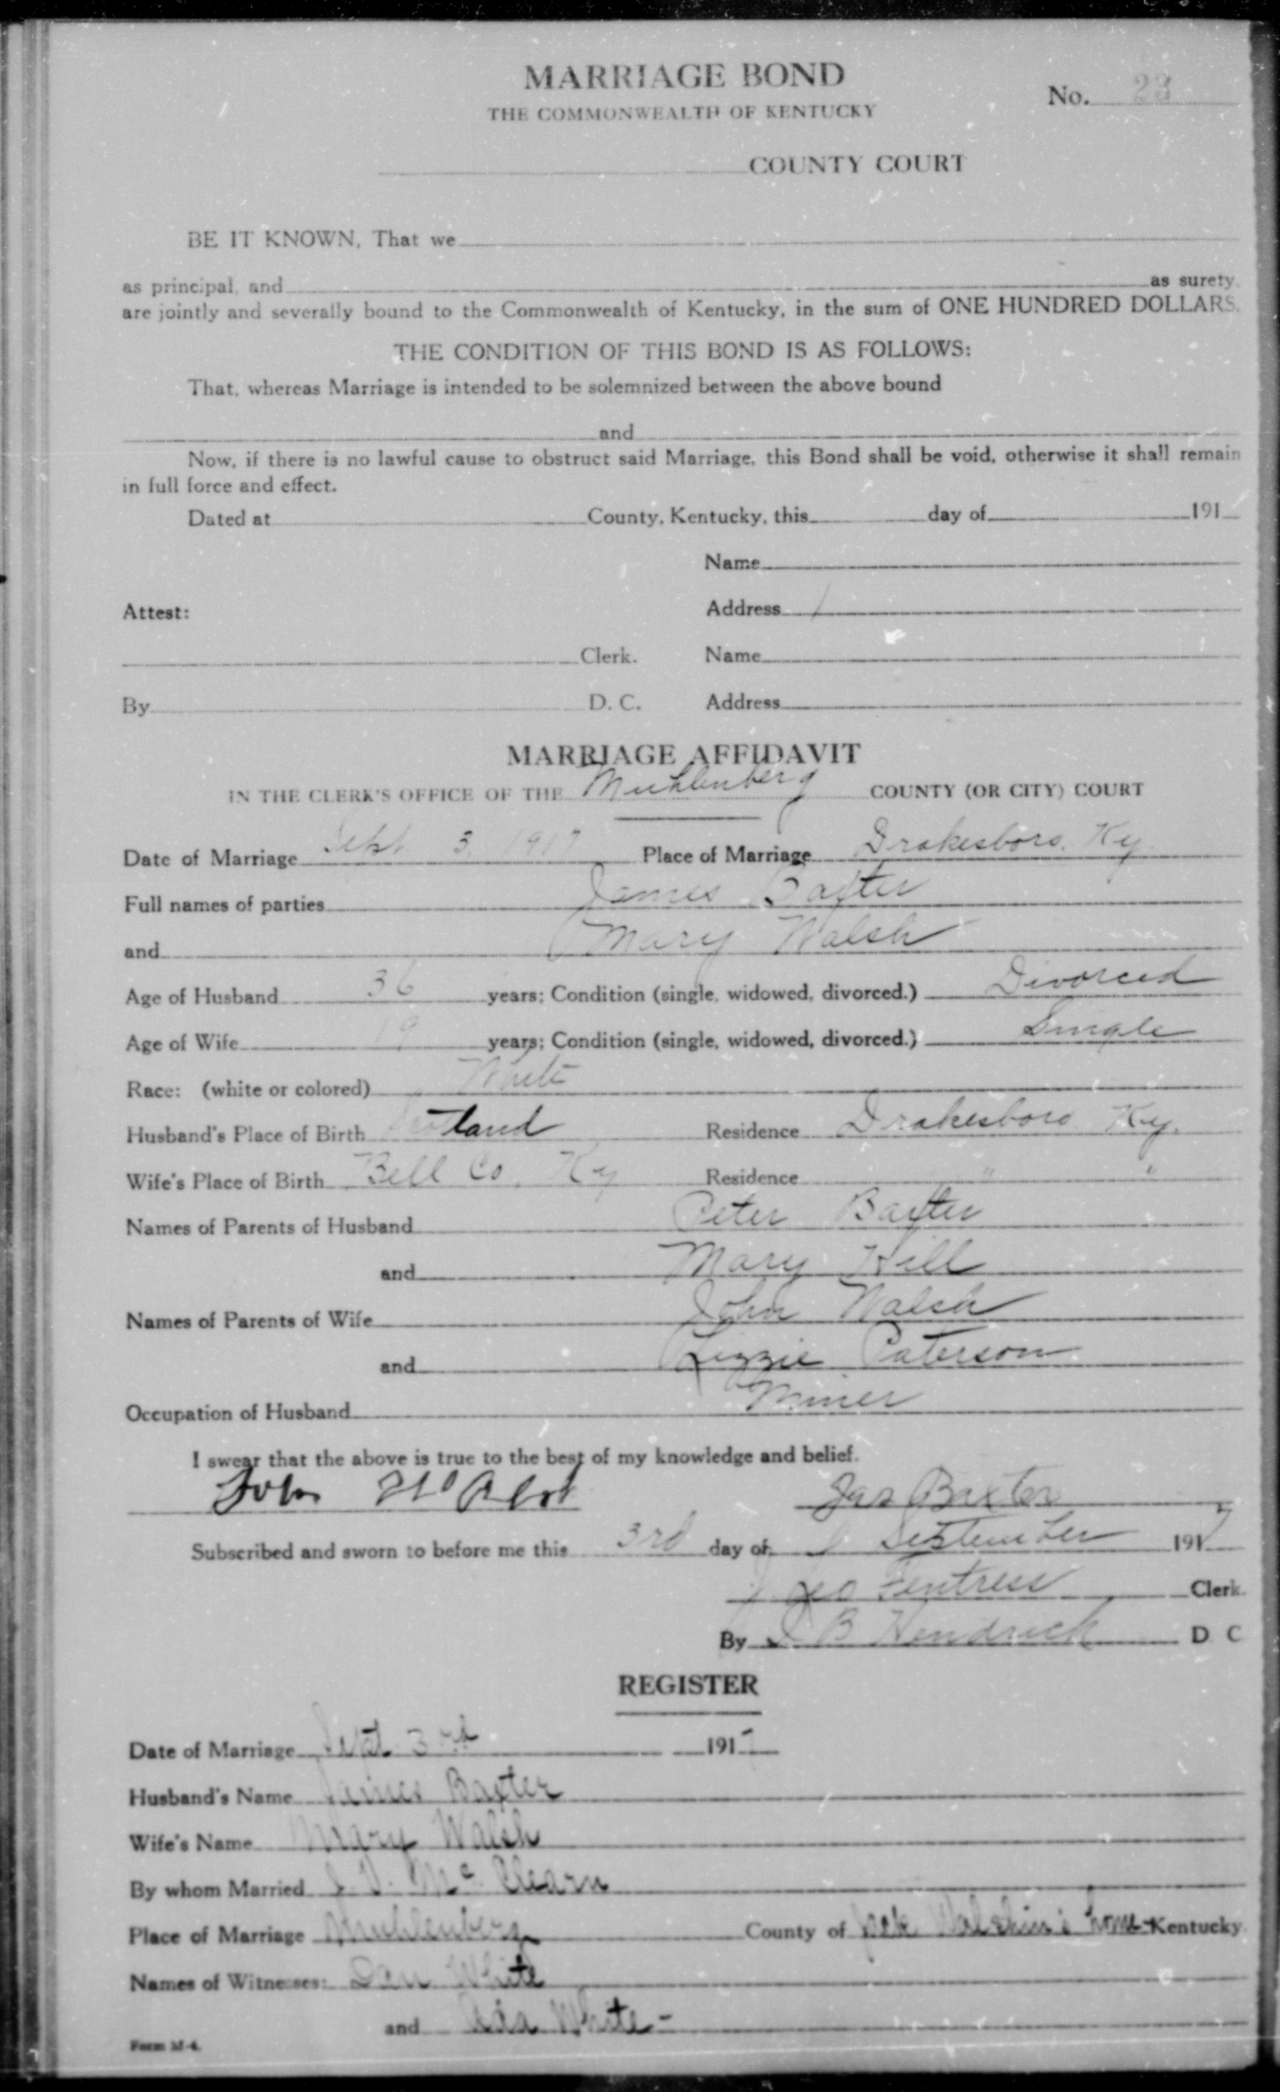 MARRIAGE BOND
No. 23
THE COMMONWEALTH OF KENTUCKY
COUNTY COURT
BE IT KNOWN, That we
as principal, and as surety,
are jointly and severally bound to the Commonwealth of Kentucky, in the sum of ONE HUNDRED DOLLARS.
THE CONDITION OF THIS BOND IS AS FOLLOWS:
That, whereas Marriage is intended to be solemnized between the above bound
and
Now, if there is no lawful cause to obstruct said Marriage, this Bond shall be void, otherwise it shall remain
in full force and effect.
Dated at County, Kentucky, this day of 191
Name
Attest: Address
Clerk. Name
By D. C. Address
MARRIAGE AFFIDAVIT
IN THE CLERK'S OFFICE OF THE Muhlenberg COUNTY (OR CITY) COURT
Date of Marriage Sept 3, 1917 Place of Marriage Drakesboro, Ky.
Full names of parties James Baxter
and Mary Walsh
Age of Husband 36 years; Condition (single, widowed, divorced.) Divorced
Age of Wife 19 years; Condition (single, widowed, divorced.) Single
Race: (white or colored) White
Husband's Place of Birth Scotland Residence Drakesboro Ky.
Wife's Place of Birth Bell Co. Ky Residence " "
Names of Parents of Husband Peter Baxter
and Mary Hill
Names of Parents of Wife John Walsh
and Lizzie Paterson
Occupation of Husband Miner
I swear that the above is true to the best of my knowledge and belief.
John Jas Baxter
Subscribed and sworn to before me this 3rd day of September 1917
Geo Fentress Clerk.
By B Hendrick D. C
REGISTER
Date of Marriage Sept 3rd 1917
Husband's Name James Baxter
Wife's Name Mary Walsh
By whom Married J. V. Mc Clearn
Place of Marriage Muhlenberg County of Jack home Kentucky
Names of Witnesses: Dan White
and Ada White -
Form M-4.